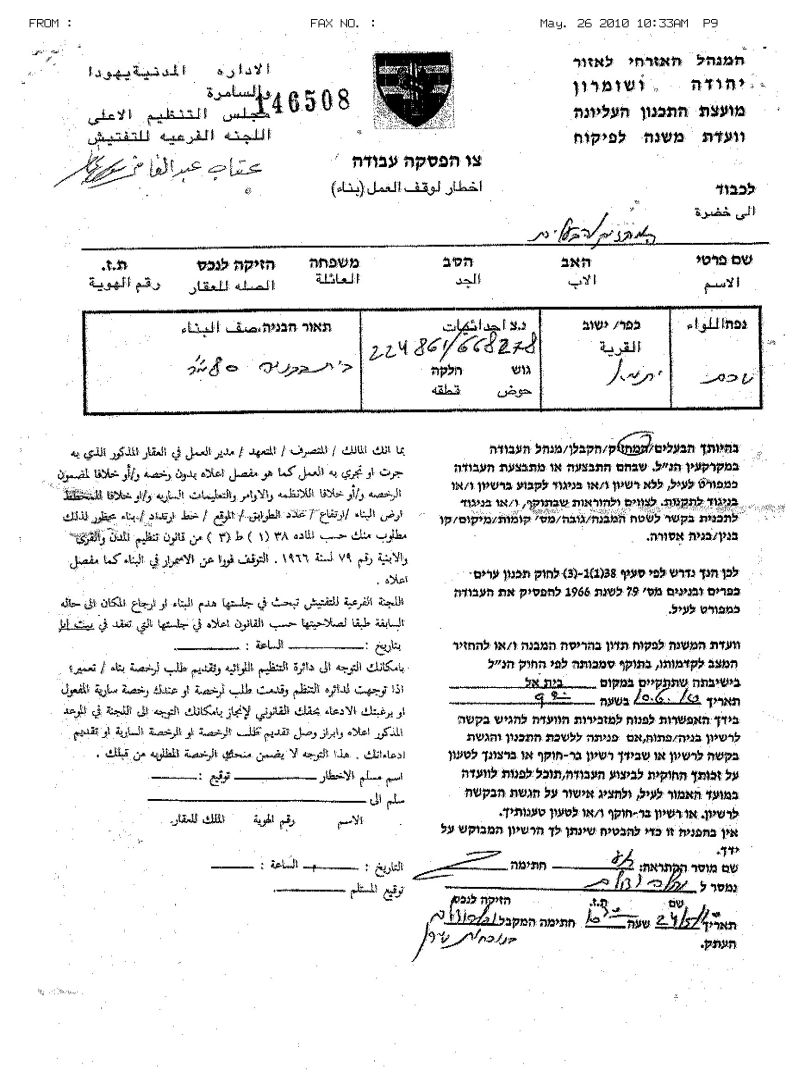 FROM : FAX NO. : May. 26 2010 10:33AM P9
המנהל האזרחי לאזור
יהודה ושומרון
מועצת התכנון העליונה
וועדת משנה לפיקוח
الاداره المدنية يهودا
والسامرة
146508
مجلس التنظيم الاعلى
اللجنه الفرعيه للتفتيش
عقاب عبد الفا
צו הפסקה עבודה
اخطار لوقف العمل (بناء)
לכבוד
الى خضرة
המחזיק/הבעלים
שם פרטי האב הסב משפחה הזיקה לנכס ת.ז.
الاسم الاب الجد العائلة الصله للعقار رقم الهوية
נפה/اللواء כפר/ ישוב נ.צ احداثيات תאור הבניה/صف البناء
القرية 224861/668278
שכם יתמא גוש חלקה בית בבניה 80 מ"ר
حوض قطقه
בהיותך הבעלים/המחזיק/הקבלן/מנהל העבודה
במקרקעין הנ"ל. שבהם התבצעה או מתבצעת העבודה
כמפורט לעיל, ללא רשיון ו/או בניגוד לקבוע ברשיון ו/או
בניגוד לתקנות. לצווים ולהוראות שבתוקף, ו/או בניגוד
לתכנית בקשר לשטח המבנה/גובה/מס' קומות/מיקום/קו
בנין/בניה אסורה.
לכן הנך נדרש לפי סעיף 38(1)-(3) לחוק תכנון ערים
כפרים ובנינים מס' 79 לשנת 1966 להפסיק את העבודה
כמפורט לעיל.
וועדת המשנה לפקוח תדון בהריסת המבנה ו/או להחזיר
המצב לקדמותו, בתוקף סמכותה לפי החוק הנ"ל
בישיבתה שתתקיים במקום בית אל
תאריך 10.6.10 בשעה
בידך האפשרות לפנות למזכירות הוועדה להגיש בקשה
לרשיון בניה/פתוח, אם פניתה ללשכת התכנון והגשת
בקשה לרשיון או שבידך רשיון בר-תוקף או ברצונך לטעון
על זכותך החוקית לביצוע העבודה, תוכל לפנות לוועדה
במועד האמור לעיל, ולהציג אישור על הגשת הבקשה
לרשיון. או רשיון בר-תוקף ו/או לטעון טענותיך.
אין בהפניה זו כדי להבטיח שינתן לך הרשיון המבוקש על
ידך.
שם מוסר ההתראה: חתימה
נמסר ל
שם ת.ז. הזיקה לנכס
תאריך 24/5/10 שעה חתימה המקבל
העתק.
بما انك المالك / المتصرف / المتعهد / مدير العمل في العقار المذكور الذي به
جرت او تجري به العمل كما هو مفصل اعلاه بدون رخصه و/أو خلافا لمضمون
الرخصه و/أو خلافا للانظمه والاوامر والتعليمات الساريه و/او خلافا للمخطط
ارض البناء /ارتفاع / عدد الطوابق / الموقع / خط ارتداد / بناء محظور لذلك
مطلوب منك حسب الماده ٣٨ (١) ط (٣) من قانون تنظيم المدن والقرى
والابنية رقم ٧٩ لسنة ١٩٦٦. التوقف فورا عن الاسمرار في البناء كما مفصل
اعلاه .
اللجنة الفرعية للتفتيش تبحث في جلستها هدم البناء او ارجاع المكان الى حاله
السابقة طبقا لصلاحيتها حسب القانون اعلاه في جلستها التي تعقد في بيت ايل
بتاريخ: الساعة :
بامكانك التوجه الى دائرة التنظيم اللوائيه وتقديم طلب لرخصة بناء / تعمير؛
اذا توجهت لدائره التنظم وقدمت طلب لرخصة او عندك رخصة سارية المفعول
او برغبتك الادعاء بحقك القانوني لإنجاز بامكانك التوجه الى اللجنة في الموعد
المذكور اعلاه وابراز وصل تقديم طلب الرخصة او الرخصة السارية او تقديم
ادعاءاتك . هذا التوجه لا يضمن منحك الرخصة المطلوبه من قبلك .
اسم مسلم الاخطار توقيع :
سلم الى
الاسم رقم الهوية الملك للعقار.
التاريخ : الساعة :
توقيع المستلم